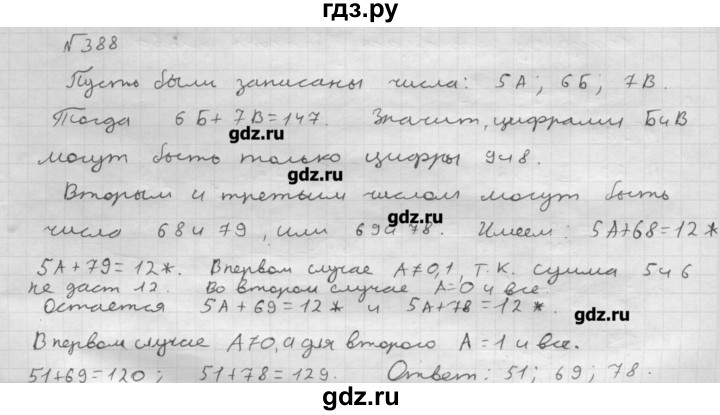 гдз.ру
№388
Пусть были записаны числа: 5А; 6Б; 7В.
Тогда 6Б+7В=147. Значит, цифрами БиВ
gdz.ru
могут быть только цифры 9и8.
gdz.ru
Вторым и третьим числом могут быть
gdz.ru
числа 68и79, или 69и78. Имеем: 5А+68=12*
5А+79=12*. В первом случае А≠0,1, т.к. сумма 5и6
не даст 12. Во втором случае А=0 и все.
Остается 5А+69=12* и 5А+78=12*.
gdz.ru
В первом случае А≠0, а для второго А=1 и все.
51+69=120; 51+78=129. Ответ: 51; 69; 78.
gdz.ru